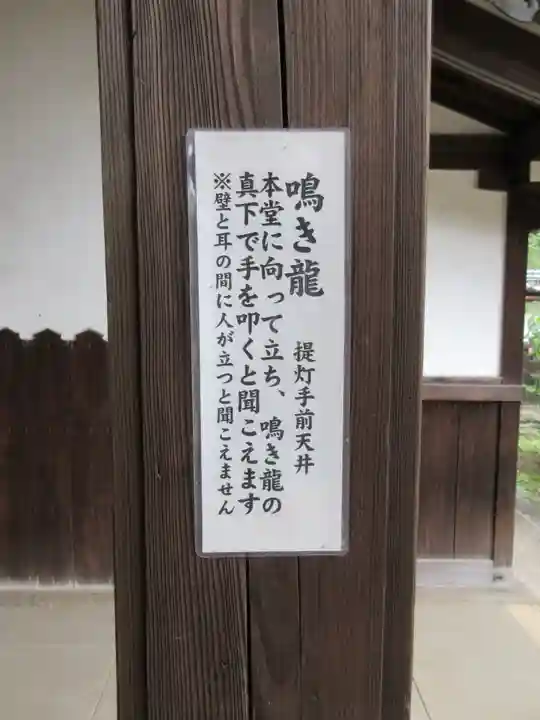 鳴き龍　提灯手前天井
本堂に向って立ち、鳴き龍の
真下で手を叩くと聞こえます
※壁と耳の間に人が立つと聞こえません